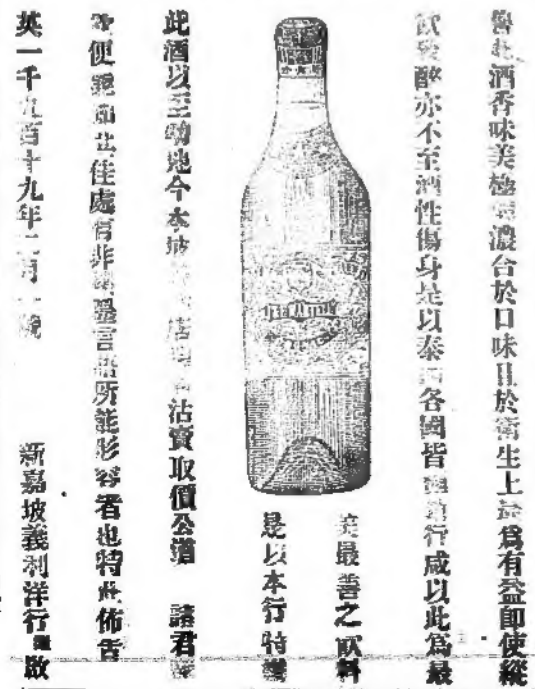 此酒香味美極濃合於口味且於衛生上最為有益即使縱
飲致醉亦不至酒性傷身是以泰西各國皆行咸以此為最
美最善之飲料
是以本行特
此酒以至地今本坡店沽賣取價公道 諸君
便知其佳處有非筆墨言所能形容者也特此佈告
英一千九百十九年二月一號 新嘉坡義利洋行啟